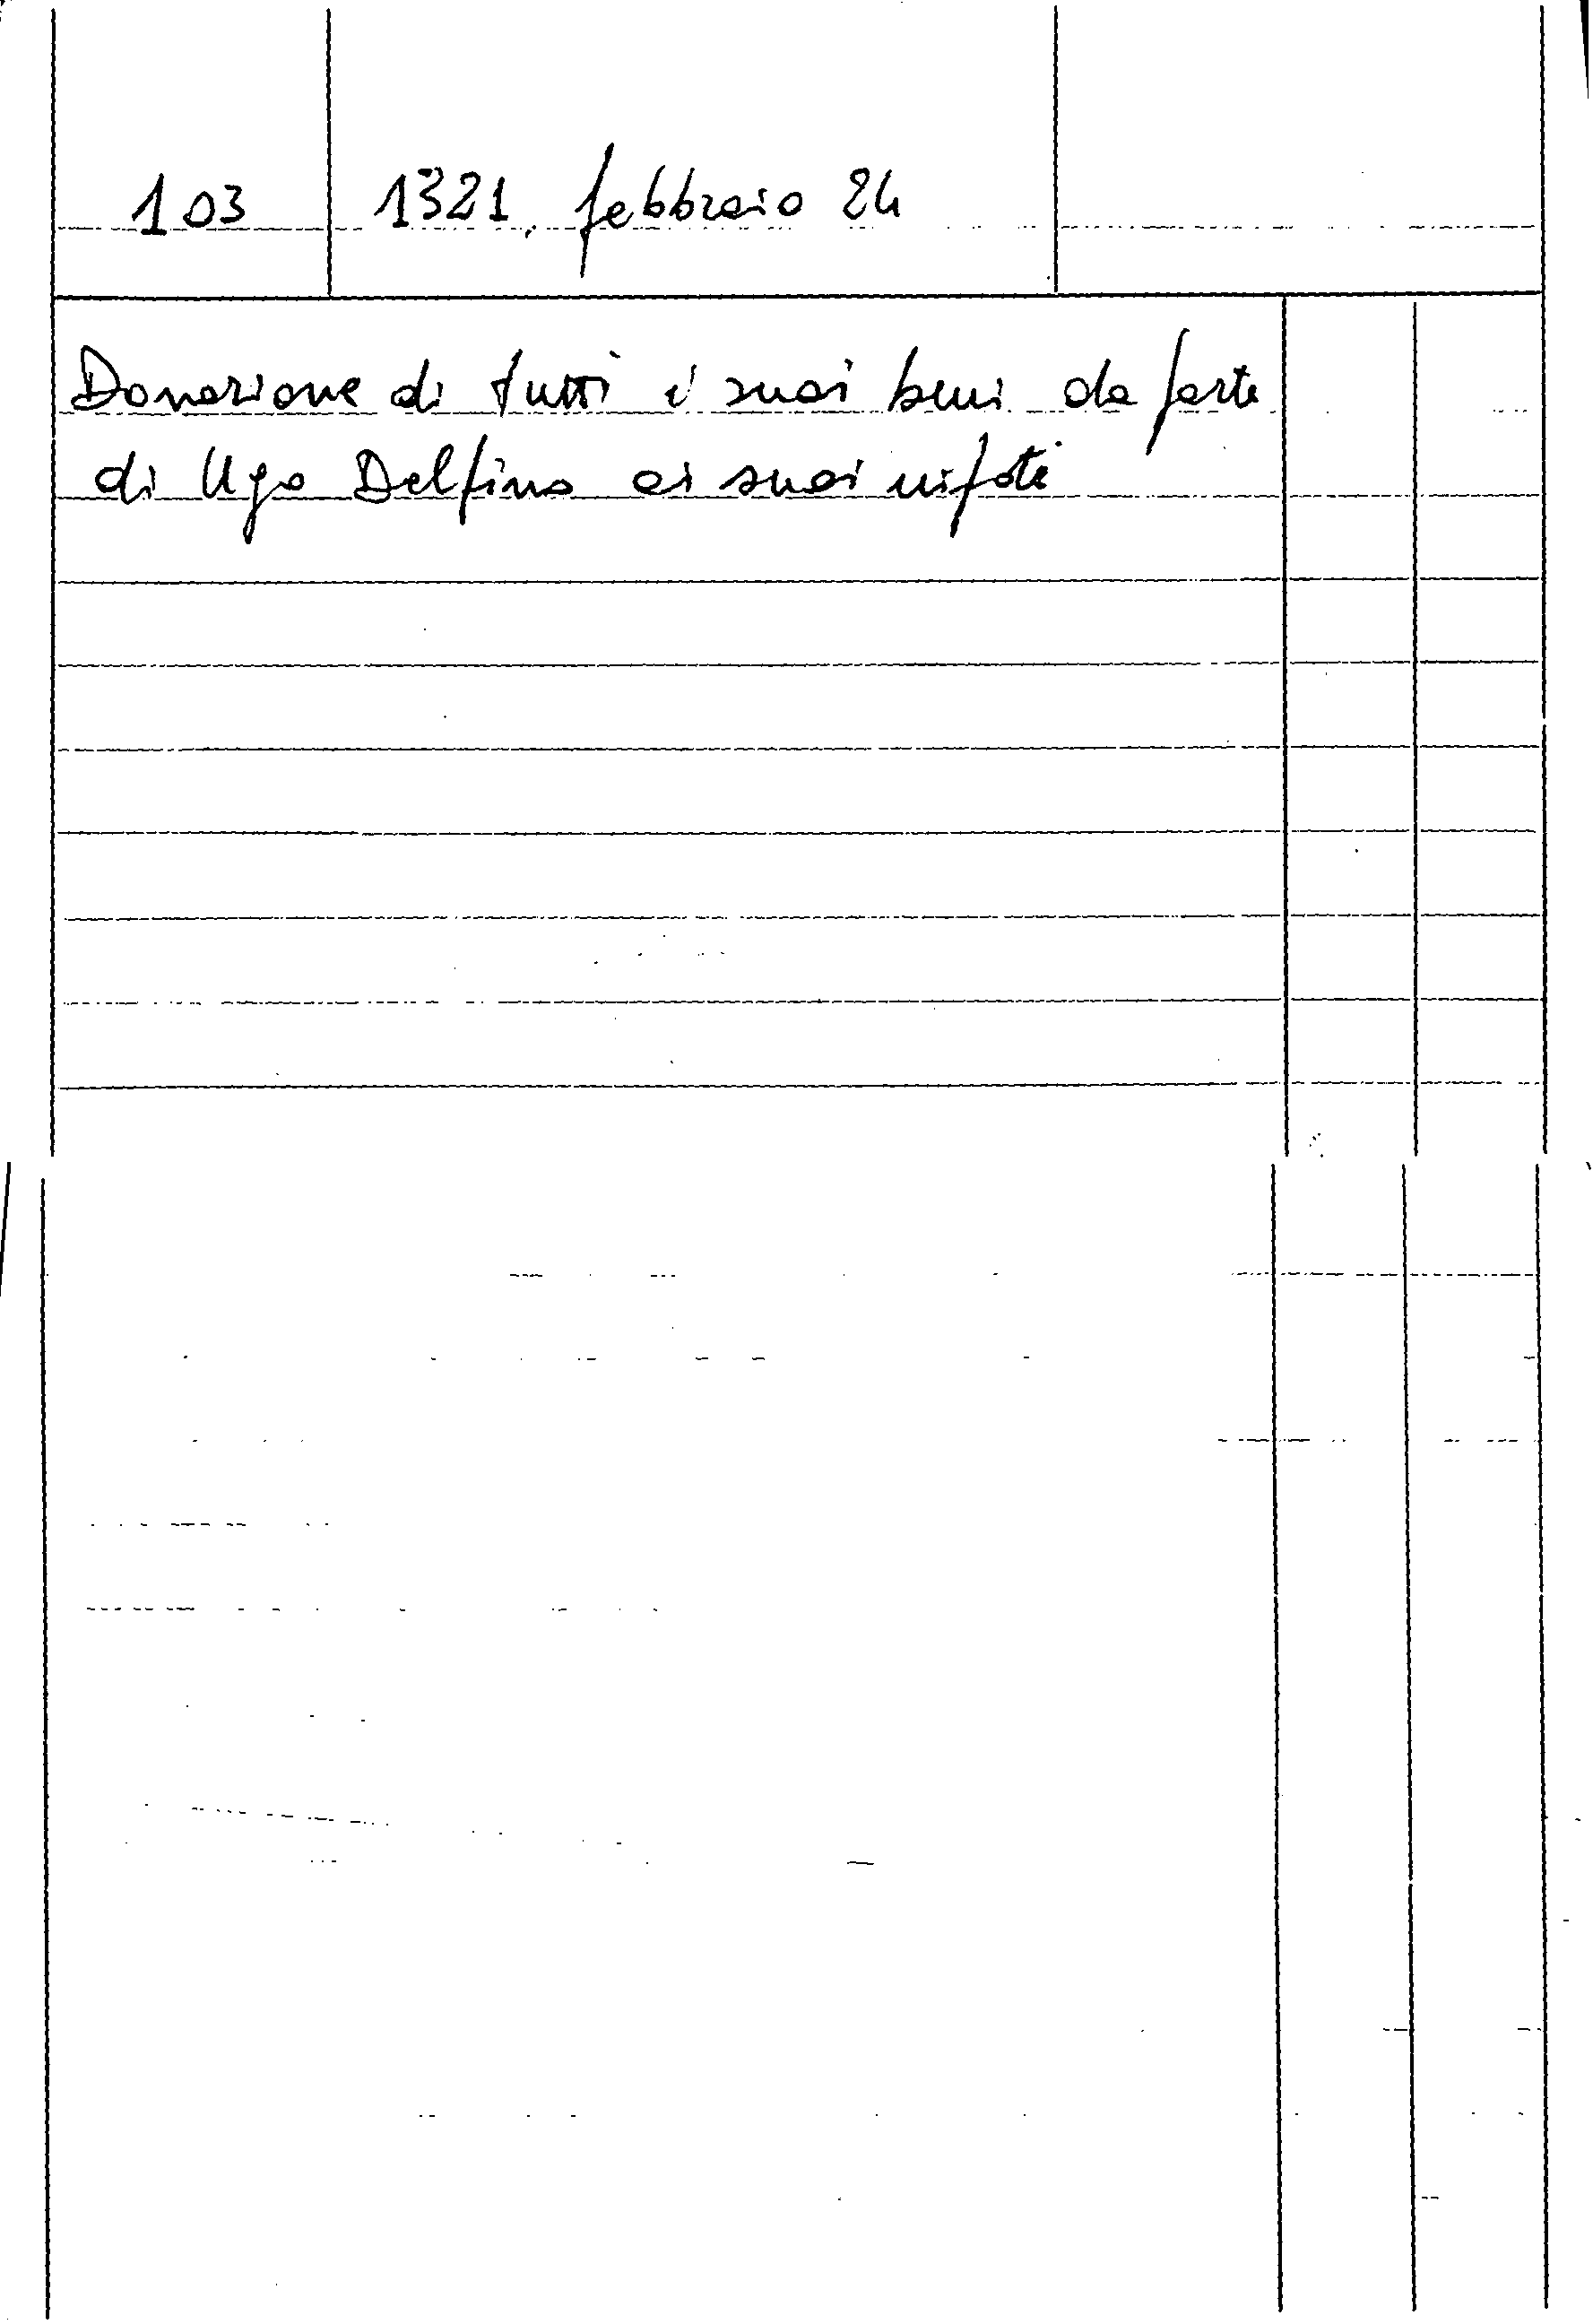 103 1321, febbraio 24
Donazione di tutti i suoi beni da parte
di Ugo Delfino ai suoi nipoti